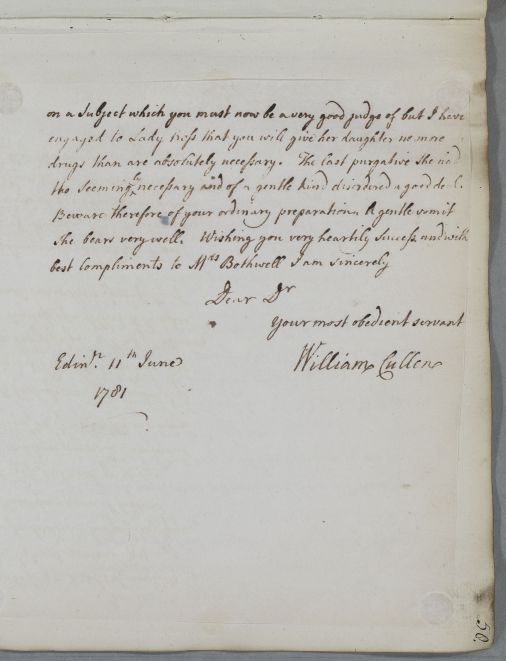 on a Subject which you must now be a very good judge of but I have
engaged to Lady Ross that you will give her daughter no more
drugs than are absolutely necessary. The last purgative She had
tho Seemingly necessary and of a gentle kind disordered a good deal.
Beware therefore of your ordinary preparation. A gentle vomit
She bears very well. Wishing you very heartily Success and with
best Compliments to Mrs Bothwell I am Sincerely
Dear Dr
Your most obedient servant
Edinr. 11th June William Cullen
1781
50.